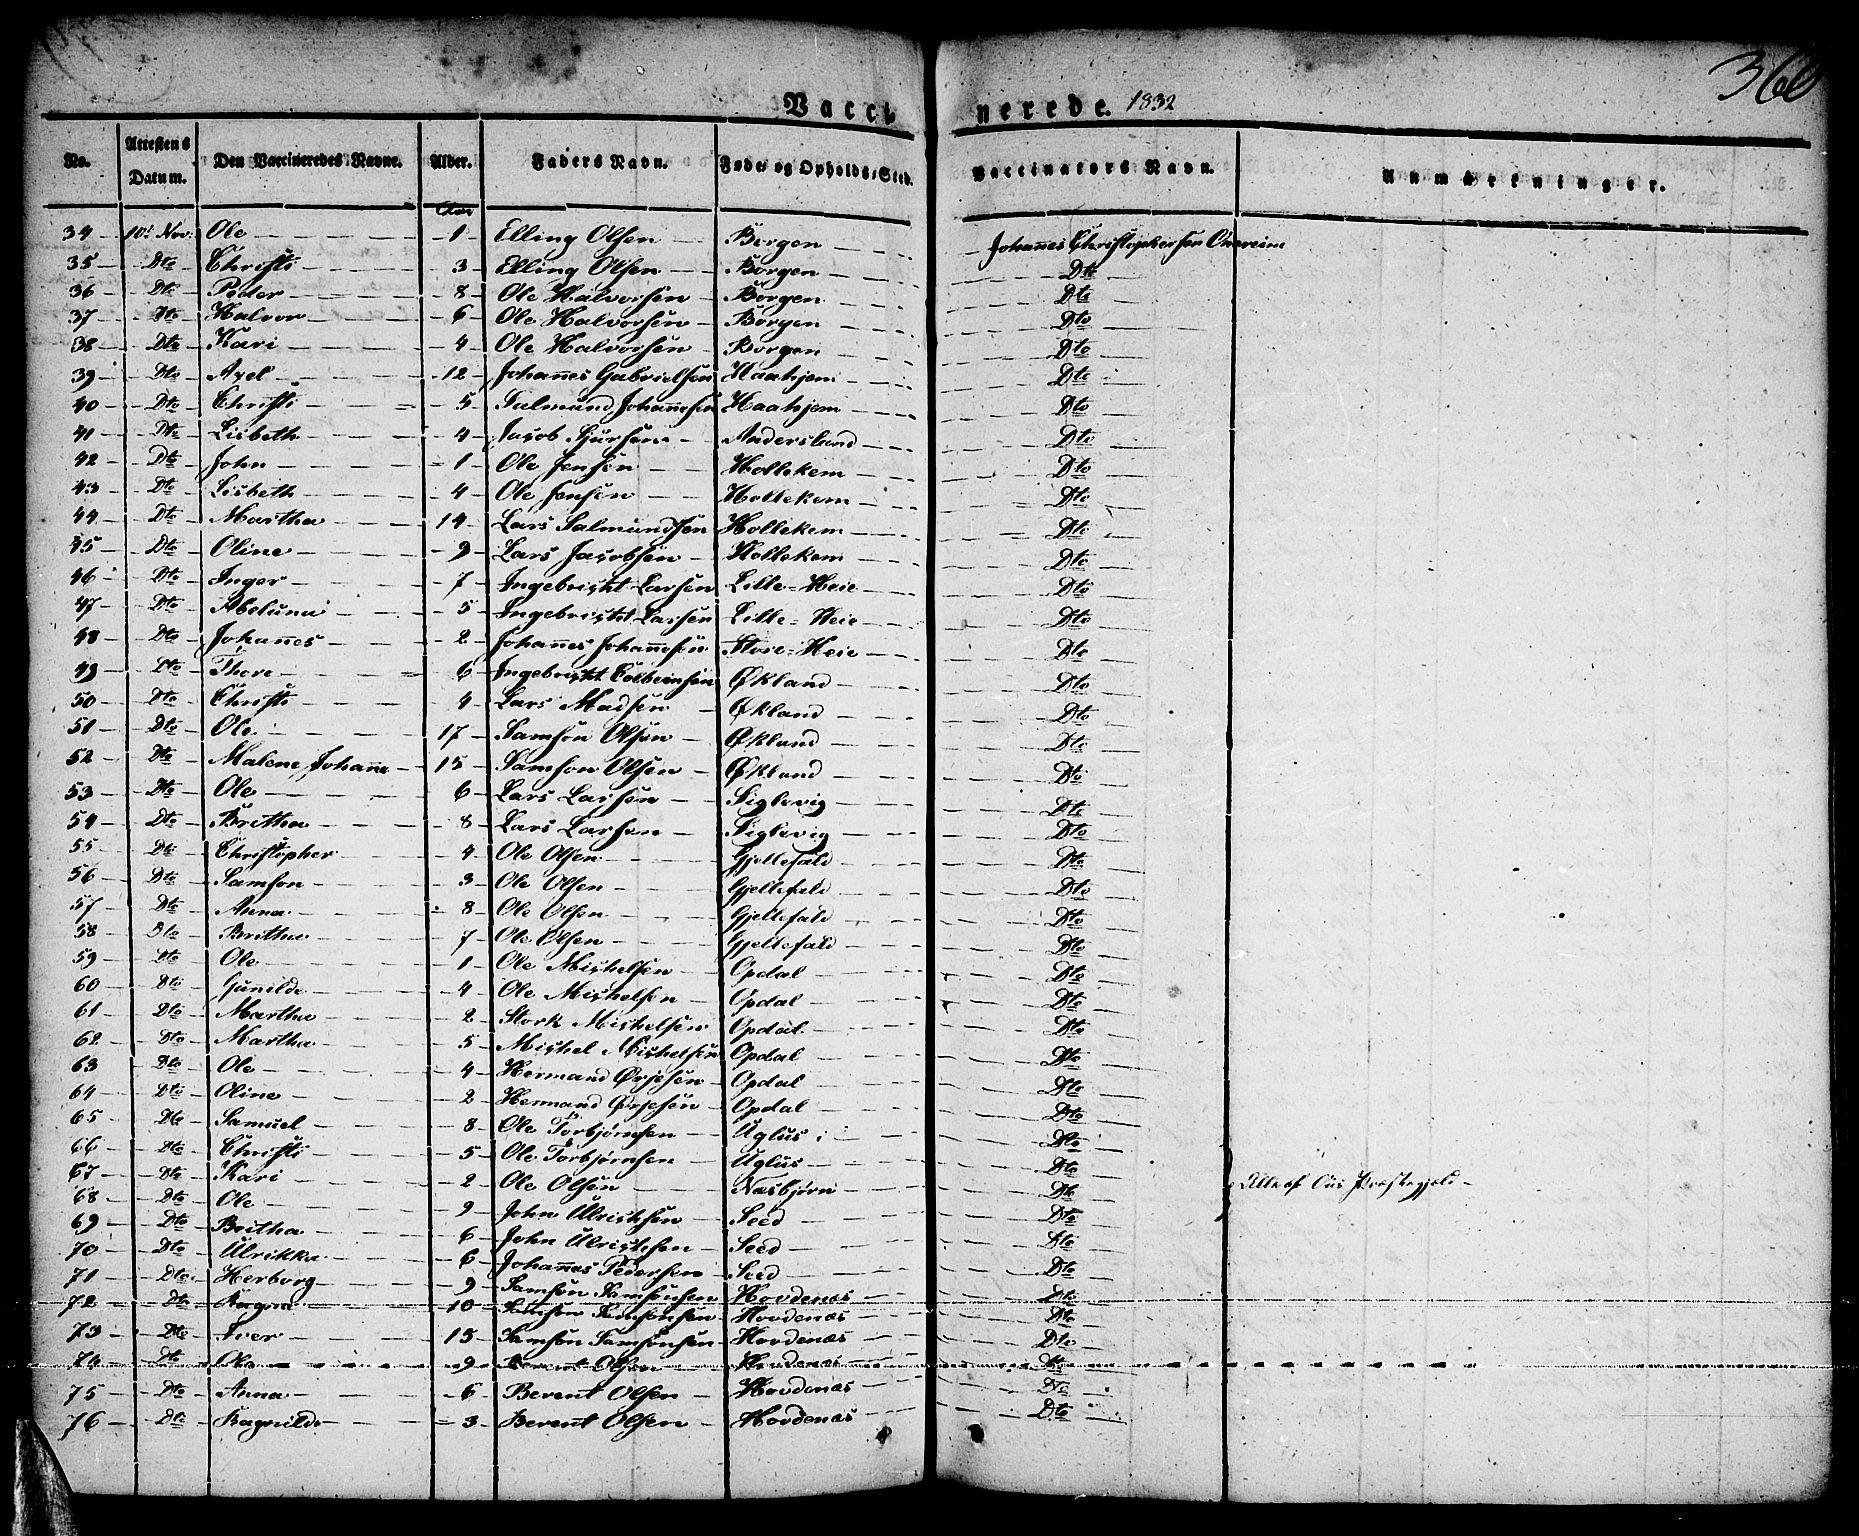 360
Vaccinerede. 1832
No. Attestens Datum. Den Vaccineredes Navne. Alder. Faders Navn. Føde- og Opholds-Sted. Vaccinators Navn. Anmärkninger.
Aar
34 10de Nov: Ole 1 Elling Olsen Borgen Johannes Christophersen
35 Dto Christi 3 Elling Olsen Borgen Dto
36 Dto Peder 8 Ole Halvorsen Borgen Dto
37 Dto Halvor 6 Ole Halvorsen Borgen Dto
38 Dto Kari 4 Ole Halvorsen Borgen Dto
39 Dto Axel 12 Johannes Gabrielsen Haahjem Dto
40 Dto Christi 5 Salmund Johannesen Haahjem Dto
41 Dto Lisbeth 4 Jacob Sjursen Andersland Dto
42 Dto John 1 Ole Jensen Hollekem Dto
43 Dto Lisbeth 4 Ole Jensen Hollekem Dto
44 Dto Martha 14 Lars Salmundsen Hollekem Dto
45 Dto Oline 9 Lars Jacobsen Hollekem Dto
46 Dto Inger 7 Ingebricht Larsen Lille-Heie Dto
47 Dto Abeluna 5 Ingebricht Larsen Lille-Heie Dto
48 Dto Johannes 2 Johannes Johannesen Store-Heie Dto
49 Dto Thore 6 Ingebricht Colbeinsen Økland Dto
50 Dto Christi 4 Lars Madsen Økland Dto
51 Dto Ole 17 Samson Olsen Økland Dto
52 Dto Malene Johanne 15 Samson Olsen Økland Dto
53 Dto Ole 6 Lars Larsen Siglevig Dto
54 Dto Britha 8 Lars Larsen Siglevig Dto
55 Dto Christopher 4 Ole Olsen Gjellefald Dto
56 Dto Samson 3 Ole Olsen Gjellefald Dto
57 Dto Anna 8 Ole Olsen Gjellefald Dto
58 Dto Britha 7 Ole Olsen Gjellefald Dto
59 Dto Ole 1 Ole Michelsen Opdal Dto
60 Dto Gunilde 4 Ole Michelsen Opdal Dto
61 Dto Martha 2 Stork Michelsen Opdal Dto
62 Dto Martha 5 Michel Michelsen Opdal Dto
63 Dto Ole 4 Hermand Ørjesen Opdal Dto
64 Dto Oline 2 Hermand Ørjesen Opdal Dto
65 Dto Samuel 8 Ole Torbjørnsen Uglus Dto
66 Dto Christi 5 Ole Torbjørnsen Uglus Dto
67 Dto Kari 2 Ole Olsen Næsbjørn Dto Alle af Ous Præstegjeld
68 Dto Ole 9 John Ulrichsen Seed Dto
69 Dto Britha 6 John Ulrichsen Seed Dto
70 Dto Ulrikka 6 Johannes Pedersen Seed Dto
71 Dto Herborg 9 Samson Samsonsen Hovdenæs Dto
72 Dto Ragna 10 Samson Samsonsen Hovdenæs Dto
73 Dto Iver 15 Samson Samsonsen Hovdenæs Dto
74 Dto Ole 9 Berent Olsen Hovdenæs Dto
75 Dto Anna 6 Berent Olsen Hovdenæs Dto
76 Dto Ragnilde 3 Berent Olsen Hovdenæs Dto